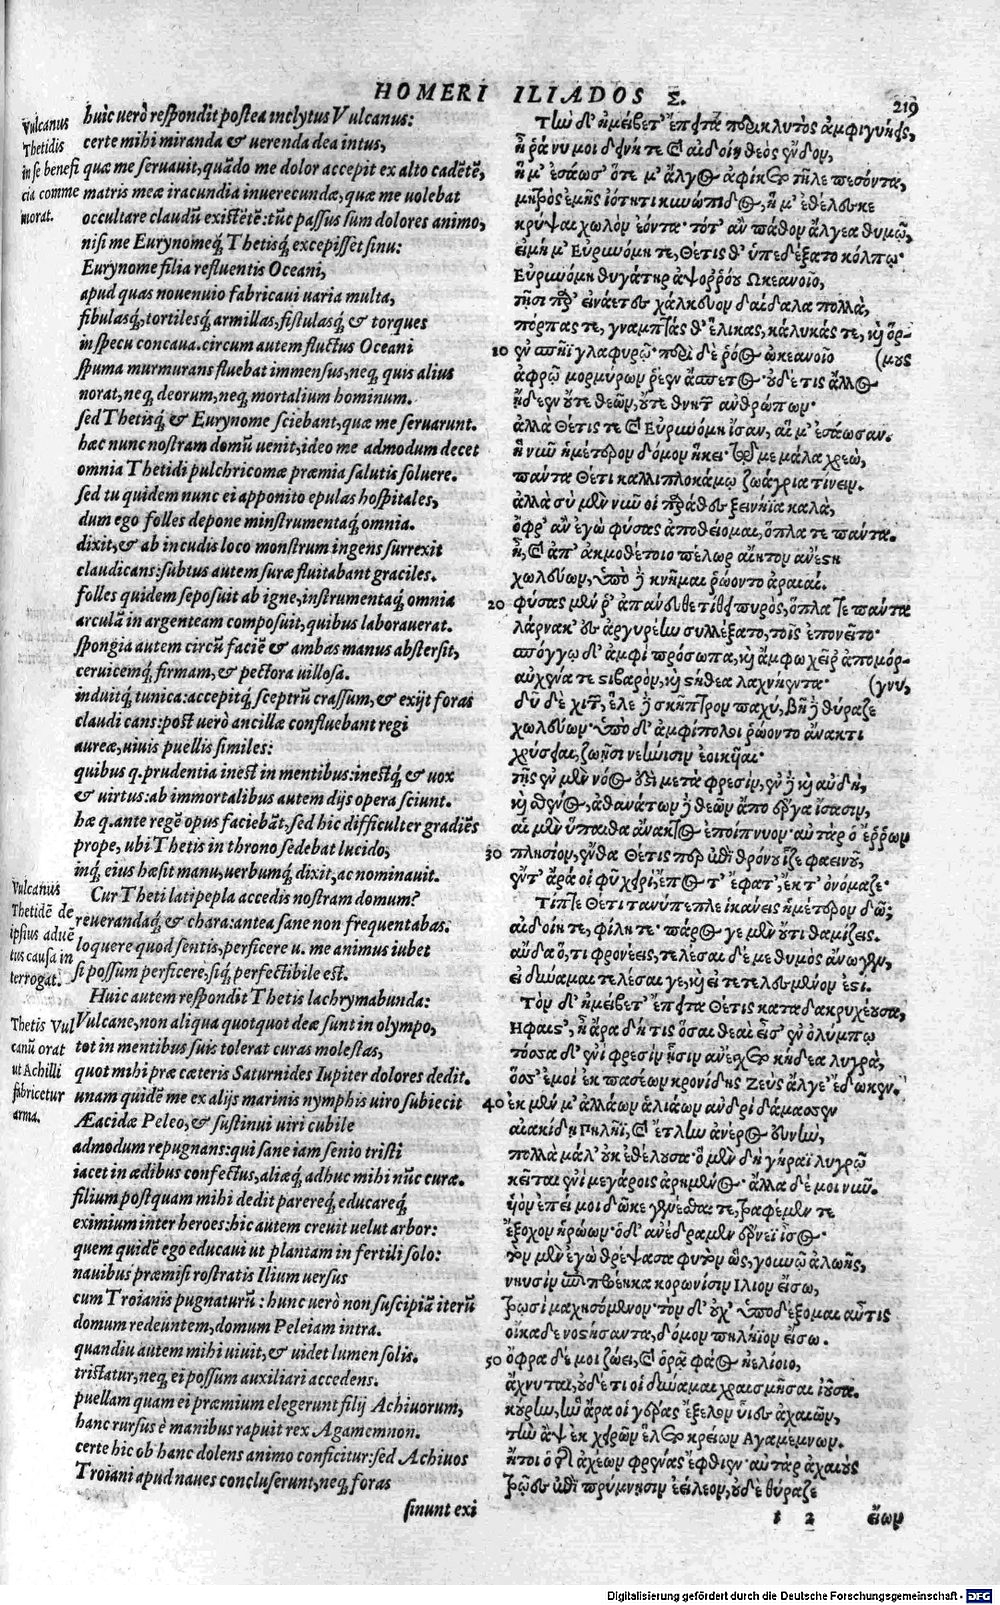 HOMERI ILIADOS Σ.
219
Vulcanus
Thetidis
in se benefi
cia comme
morat.
huic verò respondit postea inclytus Vulcanus:
certe mihi miranda & uerenda dea intus,
quæ me seruauit, quãdo me dolor accepit ex alto cadẽtẽ,
matris meæ iracundia inuerecundæ, quæ me uolebat
occultare claudũ existẽtẽ: tũc passus sum dolores animo,
nisi me Eurynomeq́; Thetisq́; excepisset sinu:
Eurynome filia refluentis Oceani,
apud quas nouennio fabricaui uaria multa,
fibulasq́;, tortilesq́; armillas, fistulasq́; & torques
in specu concaua. circum autem fluctus Oceani
spuma murmurans fluebat immensus, neq; quis alius
norat, neq; deorum, neq; mortalium hominum.
sed Thetisq́; & Eurynome sciebant, quæ me seruarunt.
hæc nunc nostram domũ uenit, ideo me admodum decet
omnia Thetidi pulchricomæ præmia salutis soluere.
sed tu quidem nunc ei apponito epulas hospitales,
dum ego folles depone minstrumentaq́; omnia.
dixit, & ab incudis loco monstrum ingens surrexit
claudicans: subtus autem suræ fluitabant graciles.
folles quidem seposuit ab igne, instrumentaq́; omnia
arculã in argenteam composuit, quibus laborauerat.
spongia autem circũ faciẽ & ambas manus abstersit,
ceruicemq́; firmam, & pectora uillosa.
induitq́; tunica: accepitq́; sceptrũ crassum, & exijt foras
claudicans: post uerò ancillæ confluebant regi
aureæ, uiuis puellis similes:
quibus q. prudentia inest in mentibus: inestq́; & uox
& uirtus: ab immortalibus autem dijs opera sciunt.
hæ q. ante regẽ opus faciebãt, sed hic difficulter gradiẽs
prope, ubi Thetis in throno sedebat lucido,
inq́; eius hæsit manu, uerbumq́; dixit, ac nominauit.
Vulcanus
Thetidẽ de
ipsius aduẽ
tus causa in
terrogat.
Cur Theti latipepla accedis nostram domum?
reuerandaq́; & chara: antea sane non frequentabas.
loquere quod sentis, perficere u. me animus iubet
si possum perficere, siq́; perfectibile est.
Huic autem respondit Thetis lachrymabunda:
Thetis Vul
canũ orat
ut Achilli
fabricetur
arma.
Vulcane, non aliqua quotquot deæ sunt in olympo,
tot in mentibus suis tolerat curas molestas,
quot mihi præ cæteris Saturnides Iupiter dolores dedit.
unam quidẽ me ex alijs marinis nymphis uiro subiecit
Æacidæ Peleo, & sustinui uiri cubile
admodum repugnans: qui sane iam senio tristi
iacet in ædibus confectus, aliæq́; adhuc mihi nũc curæ.
filium postquam mihi dedit parereq́; educareq́;
eximium inter heroes: hic autem creuit uelut arbor:
quem quidẽ ego educaui ut plantam in fertili solo:
nauibus præmisi rostratis Ilium uersus
cum Troianis pugnaturũ: hunc uerò non suscipiã iterũ
domum redeuntem, domum Peleiam intra.
quandiu autem mihi uiuit, & uidet lumen solis.
tristatur, neq; ei possum auxiliari accedens.
puellam quam ei præmium elegerunt filij Achiuorum,
hanc rursus è manibus rapuit rex Agamemnon.
certe hic ob hanc dolens animo conficitur: sed Achiuos
Troiani apud naues concluserunt, neq; foras
sinunt exi
Τὴν δ' ἠμείβετ' ἔπειτα περικλυτὸς ἀμφιγυήεις,
ἦ ῥά νυ μοι δεινή τε καὶ αἰδοίη θεὸς ἔνδον,
ἥ μ' ἐσάωσ' ὅτε μ' ἄλγος ἀφίκετο τῆλε πεσόντα,
μητρὸς ἐμῆς ἰότητι κυνώπιδος, ἥ μ' ἐθέλησκε
κρύψαι χωλὸν ἐόντα· τότ' ἂν πάθον ἄλγεα θυμῷ,
εἰ μή μ' Εὐρυνόμη τε, Θέτις θ' ὑπεδέξατο κόλπῳ·
Εὐρυνόμη θυγάτηρ ἀψορρόου Ὠκεανοῖο,
τῇσι παρ' εἰνάετες χάλκευον δαίδαλα πολλὰ,
πόρπας τε, γναμπτάς θ' ἕλικας, κάλυκάς τε, καὶ ὅρ-
10 ἐν σπῆϊ γλαφυρῷ· περὶ δὲ ῥόος ὠκεανοῖο (μους
ἀφρῷ μορμύρων ῥέεν ἄσπετος· οὐδέ τις ἄλλος
ᾔδεεν οὔτε θεῶν, οὔτε θνητῶν ἀνθρώπων·
ἀλλὰ Θέτις τε καὶ Εὐρυνόμη ἴσαν, αἵ μ' ἐσάωσαν.
ἣ νῦν ἡμέτερον δόμον ἥκει· τῷ με μάλα χρεὼ,
πάντα Θέτι καλλιπλοκάμῳ ζωάγρια τίνειν.
ἀλλὰ σὺ μὲν νῦν οἱ παράθες ξεινήϊα καλὰ,
ὄφρ' ἂν ἐγὼ φύσας ἀποθείομαι, ὅπλα τε πάντα.
ἦ, καὶ ἀπ' ἀκμοθέτοιο πέλωρ αἴητον ἀνέστη
χωλεύων, ὑπὸ δὲ κνῆμαι ῥώοντο ἀραιαί.
20 φύσας μέν ῥ' ἀπάνευθε τίθει πυρὸς, ὅπλα τε πάντα
λάρνακ' ἐς ἀργυρέην συλλέξατο, τοῖς ἐπονεῖτο·
σπόγγῳ δ' ἀμφὶ πρόσωπα, καὶ ἄμφω χεῖρ' ἀπομόρ-
αὐχένα τε στιβαρὸν, καὶ στήθεα λαχνήεντα· (γνυ,
δῦ δὲ χιτῶν', ἕλε δὲ σκῆπτρον παχὺ, βῆ δὲ θύραζε
χωλεύων· ὑπὸ δ' ἀμφίπολοι ῥώοντο ἄνακτι
χρύσειαι, ζωῇσι νεήνισιν ἐοικυῖαι·
τῇς ἐν μὲν νόος ἐστὶ μετὰ φρεσὶν, ἐν δὲ καὶ αὐδὴ,
καὶ σθένος, ἀθανάτων δὲ θεῶν ἄπο ἔργα ἴσασιν,
αἱ μὲν ὕπαιθα ἄνακτος ἐποίπνυον· αὐτὰρ ὁ ἔρρων
30 πλησίον, ἔνθα Θέτις περ ἐπὶ θρόνου ἷζε φαεινοῦ,
ἔν τ' ἄρα οἱ φῦ χειρὶ, ἔπος τ' ἔφατ', ἔκ τ' ὀνόμαζε·
Τίπτε Θέτι τανύπεπλε ἱκάνεις ἡμέτερον δῶ;
αἰδοίη τε, φίλη τε· πάρος γε μὲν οὔτι θαμίζεις.
αὔδα ὅ, τι φρονέεις, τελέσαι δέ με θυμὸς ἄνωγεν,
εἰ δύναμαι τελέσαι γε, καὶ εἰ τετελεσμένον ἐστί.
Τὸν δ' ἠμείβετ' ἔπειτα Θέτις κατὰ δακρυχέουσα,
Ηφαιστ', ἦ ἄρα δή τις ὅσαι θεαὶ εἰσ' ἐν ὀλύμπῳ
τόσσα δ' ἐνὶ φρεσὶν ᾗσιν ἀνέσχετο κήδεα λυγρὰ,
ὅσσ' ἐμοὶ ἐκ πασέων κρονίδης Ζεὺς ἄλγε' ἔδωκεν.
40 ἐκ μέν μ' ἀλλάων ἁλιάων ἀνδρὶ δάμασσεν
αἰακίδῃ Πηλῆϊ, καὶ ἔτλην ἀνέρος εὐνὴν,
πολλὰ μάλ' οὐκ ἐθέλουσα· ὁ μὲν δὴ γήραϊ λυγρῷ
κεῖται ἐνὶ μεγάροις ἀρημένος· ἄλλα δέ μοι νῦν.
υἱὸν ἐπεί μοι δῶκε γενέσθαι τε, τραφέμεν τε
ἔξοχον ἡρώων· ὁ δ' ἀνέδραμεν ἔρνεϊ ἶσος·
τὸν μὲν ἐγὼ θρέψασα φυτὸν ὣς, γουνῷ ἀλωῆς,
νηυσὶν ἐπιπροέηκα κορωνίσιν Ιλιον εἴσω,
Τρωσὶ μαχησόμενον· τὸν δ' οὐχ' ὑποδέξομαι αὖτις
οἴκαδε νοστήσαντα, δόμον πηλήϊον εἴσω.
50 ὄφρα δέ μοι ζώει, καὶ ὁρᾷ φάος ἠελίοιο,
ἄχνυται, οὐδέ τι οἱ δύναμαι χραισμῆσαι ἰοῦσα.
κούρην, ἣν ἄρα οἱ γέρας ἔξελον υἷες ἀχαιῶν,
τὴν ἂψ ἐκ χειρῶν ἕλετο κρείων Αγαμέμνων.
ἤτοι ὁ τῆς ἀχέων φρένας ἔφθιεν· αὐτὰρ ἀχαιοὺς
Τρῶες ἐπὶ πρύμνῃσιν ἐείλεον, οὐδὲ θύραζε
1 2 εἴων
Digitalisierung gefördert durch die Deutsche Forschungsgemeinschaft - DFG